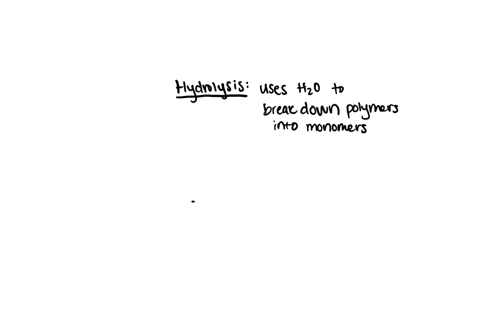 Hydrolysis: uses H₂O to
break down polymers
into monomers